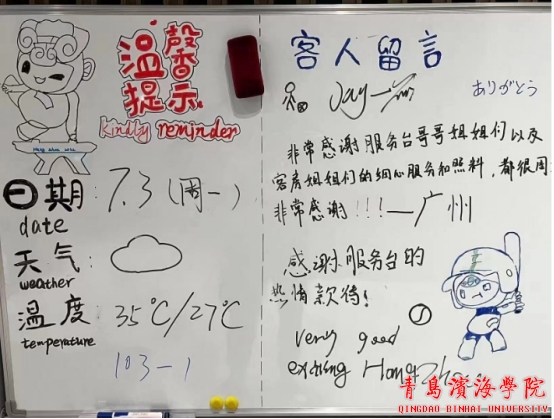 温馨
提示
kindly reminder
日期: 7.3 (周一)
date
天气:
weather
温度 35℃/27℃
temperature
103-1
客人留言
Jay
ありがとう
非常感谢服务台哥哥姐姐们以及
客房姐姐们的细心服务和照料,都很周
非常感谢!!!—广州
感谢服务台的
热情款待!
very good
exciting
青島濱海學院
QINGDAO BINHAI UNIVERSITY